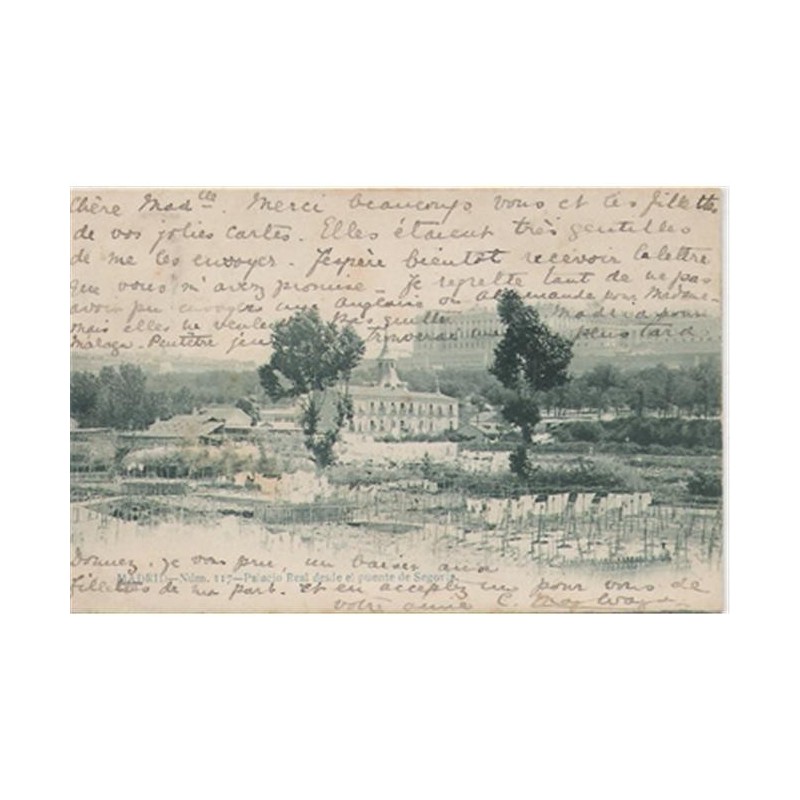 Chère Mad^elle. Merci beaucoup vous et les fillettes
de vos jolies cartes. Elles étaient très gentilles
de me les envoyer. J'espère bientot recevoir la lettre
que vous m'avez promise - Je regrette tant de ne pas
avoir pu envoyer une anglaise ou allemande pour Madame-
mais elles ne veulent pas quitter Madrid pour
Malaga. Peutêtre j'en trouverai une plus tard.
Donnez, je vous prie, un baiser aux
MADRID.—Núm. 117—Palacio Real desde el puente de Segovia.
fillettes de ma part. et en acceptez un pour vous de
votre amie C.